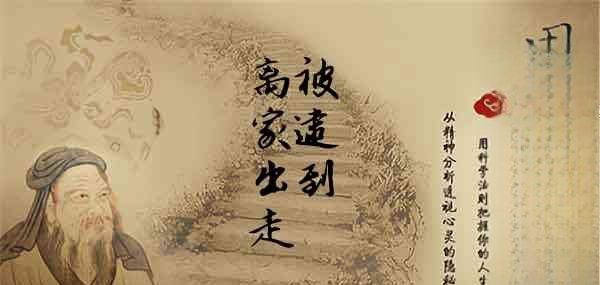 用科学法则把握你的人生
从精神分析透视心灵的隐秘
被逮到
离家出走